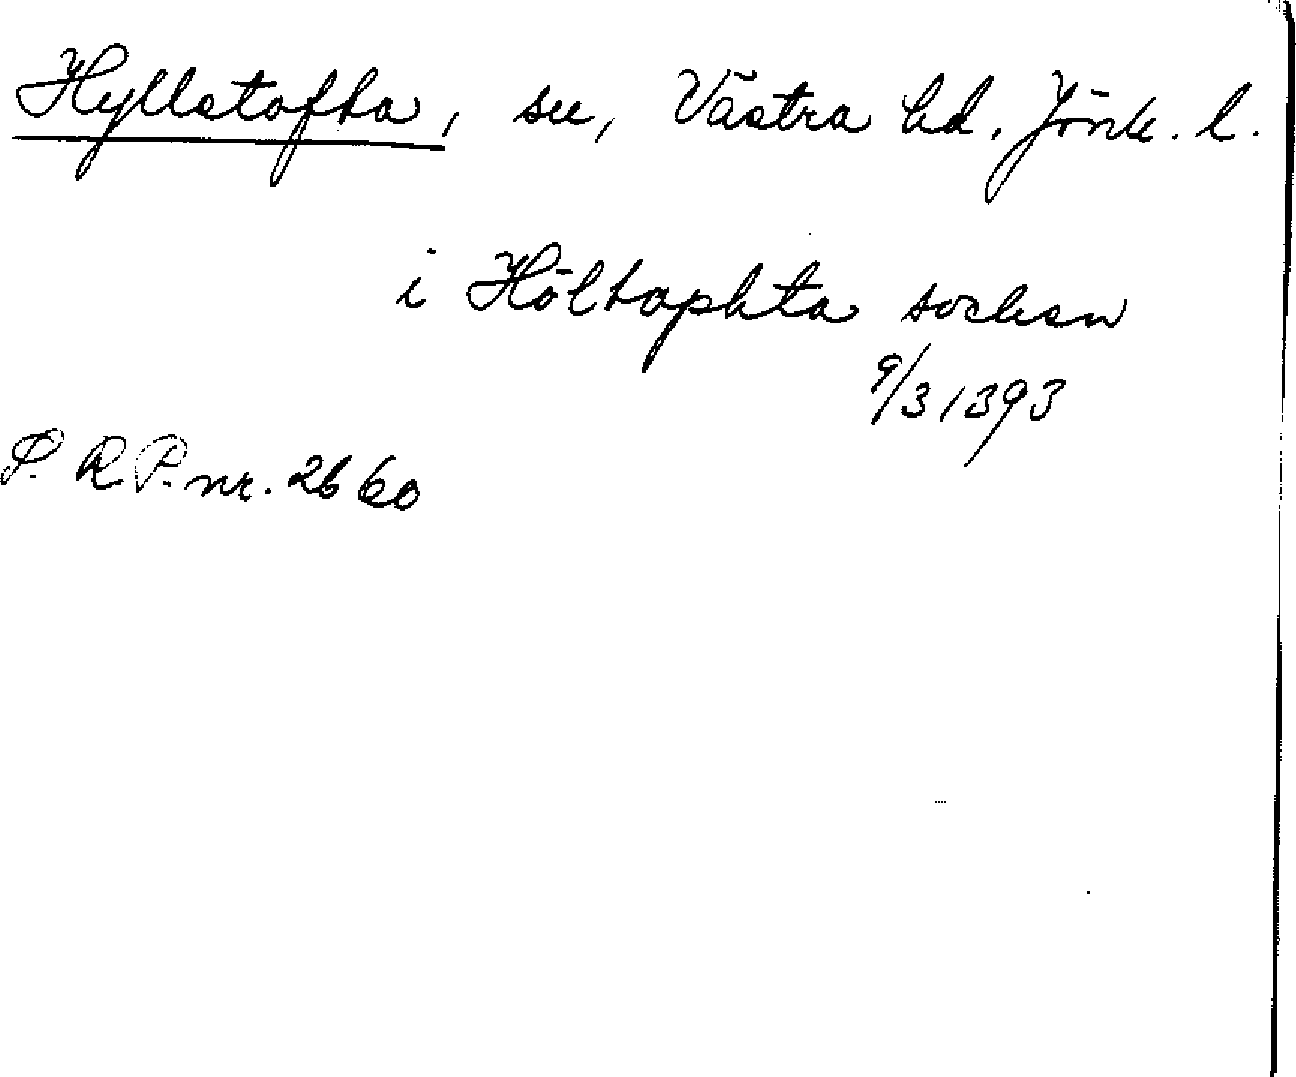 Hylletofta, sn, Västra hd. Jönk. l.
i Höltophta sochen
9/3 1393
S. R. P. nr. 2660